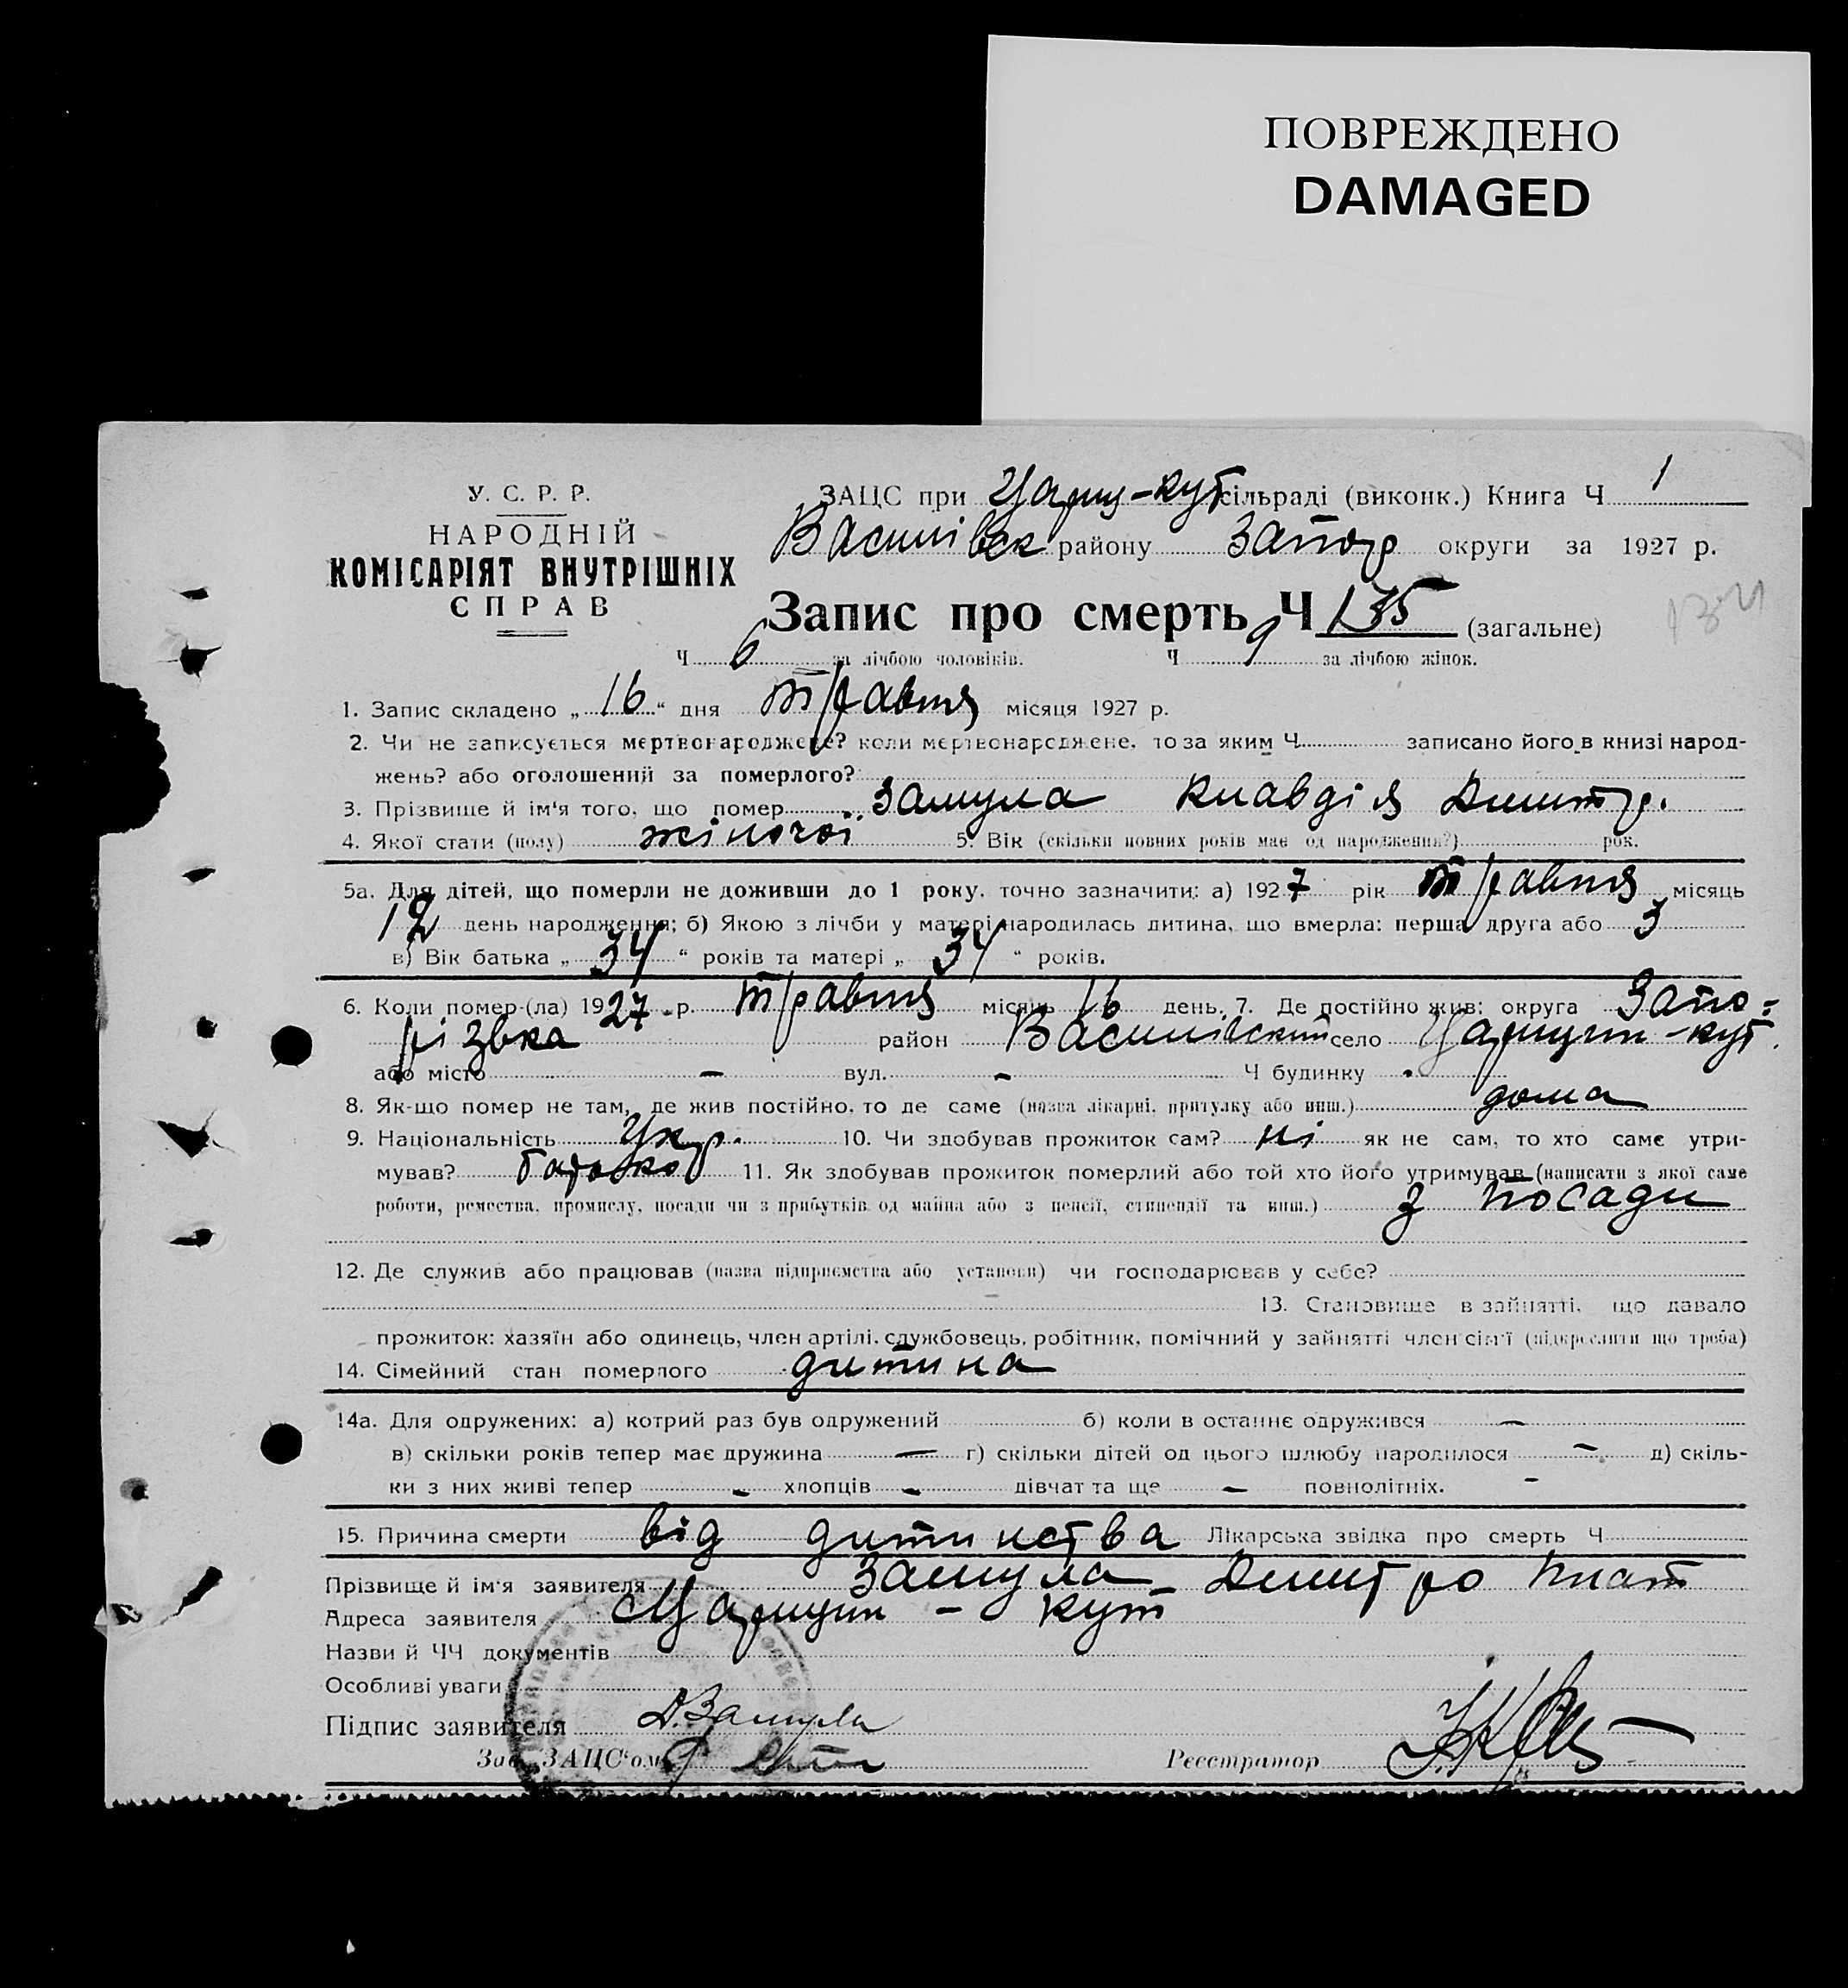 ПОВРЕЖДЕНО
DAMAGED
У. С. Р. Р.
НАРОДНІЙ
КОМІСАРІЯТ ВНУТРІШНІХ
СПРАВ
ЗАЦС при Цариц-кут сільраді (виконк.) Книга Ч 1
Василівск району Запор округи за 1927 р.
Запис про смерть Ч 135 (загальне)
Ч 6 за лічбою чоловіків. Ч 9 за лічбою жінок.
1. Запис складено „16“ дня травня місяця 1927 р.
2. Чи не записується мертвонароджене? коли мертвонароджене, то за яким Ч. записано його в книзі народ-
жень? або оголошений за померлого?
3. Прізвище й ім'я того, що помер Замула Клавдія Дмитр.
4. Якої стати (полу) жіночої 5. Вік (скільки повних років має од народження?) рок.
5а. Для дітей, що померли не доживши до 1 року, точно зазначити: а) 1927 рік травня місяць
12 день народження; б) Якою з лічби у матері народилась дитина, що вмерла: перша друга або 3
в) Вік батька „34“ років та матері „34“ років.
6. Коли помер-(ла) 1927 р. травня місяць 16 день. 7. Де постійно жив: округа Запо=
різвка район Василівский село Царицин-кут.
або місто — вул. — Ч будинку
8. Як-що помер не там, де жив постійно, то де саме (назва лікарні, притулку або инш.) дома
9. Національність Укр. 10. Чи здобував прожиток сам? ні як не сам, то хто саме утри-
мував? батько 11. Як здобував прожиток померлий або той хто його утримував (написати з якої саме
роботи, ремества, промислу, посади чи з прибутків од майна або з пенсії, стипендії та инш.) з посади
12. Де служив або працював (назва підприємства або установи) чи господарював у себе?
13. Становище в зайнятті, що давало
прожиток: хазяїн або одинець, член артілі, службовець, робітник, помічний у зайнятті член сім'ї (підкреслити що треба)
14. Сімейний стан померлого дитина
14а. Для одружених: а) котрий раз був одружений б) коли в останнє одружився —
в) скільки років тепер має дружина — г) скільки дітей од цього шлюбу народилося — д) скіль-
ки з них живі тепер — хлопців — дівчат та ще — повнолітніх. —
15. Причина смерти від дитинства Лікарська звідка про смерть Ч
Прізвище й ім'я заявителя Замула Дмитро Плат
Адреса заявителя с Царицин - кут
Назви й ЧЧ документів
Особливі уваги
Підпис заявителя Д.Замула
Зав. ЗАЦС'ом Реєстратор